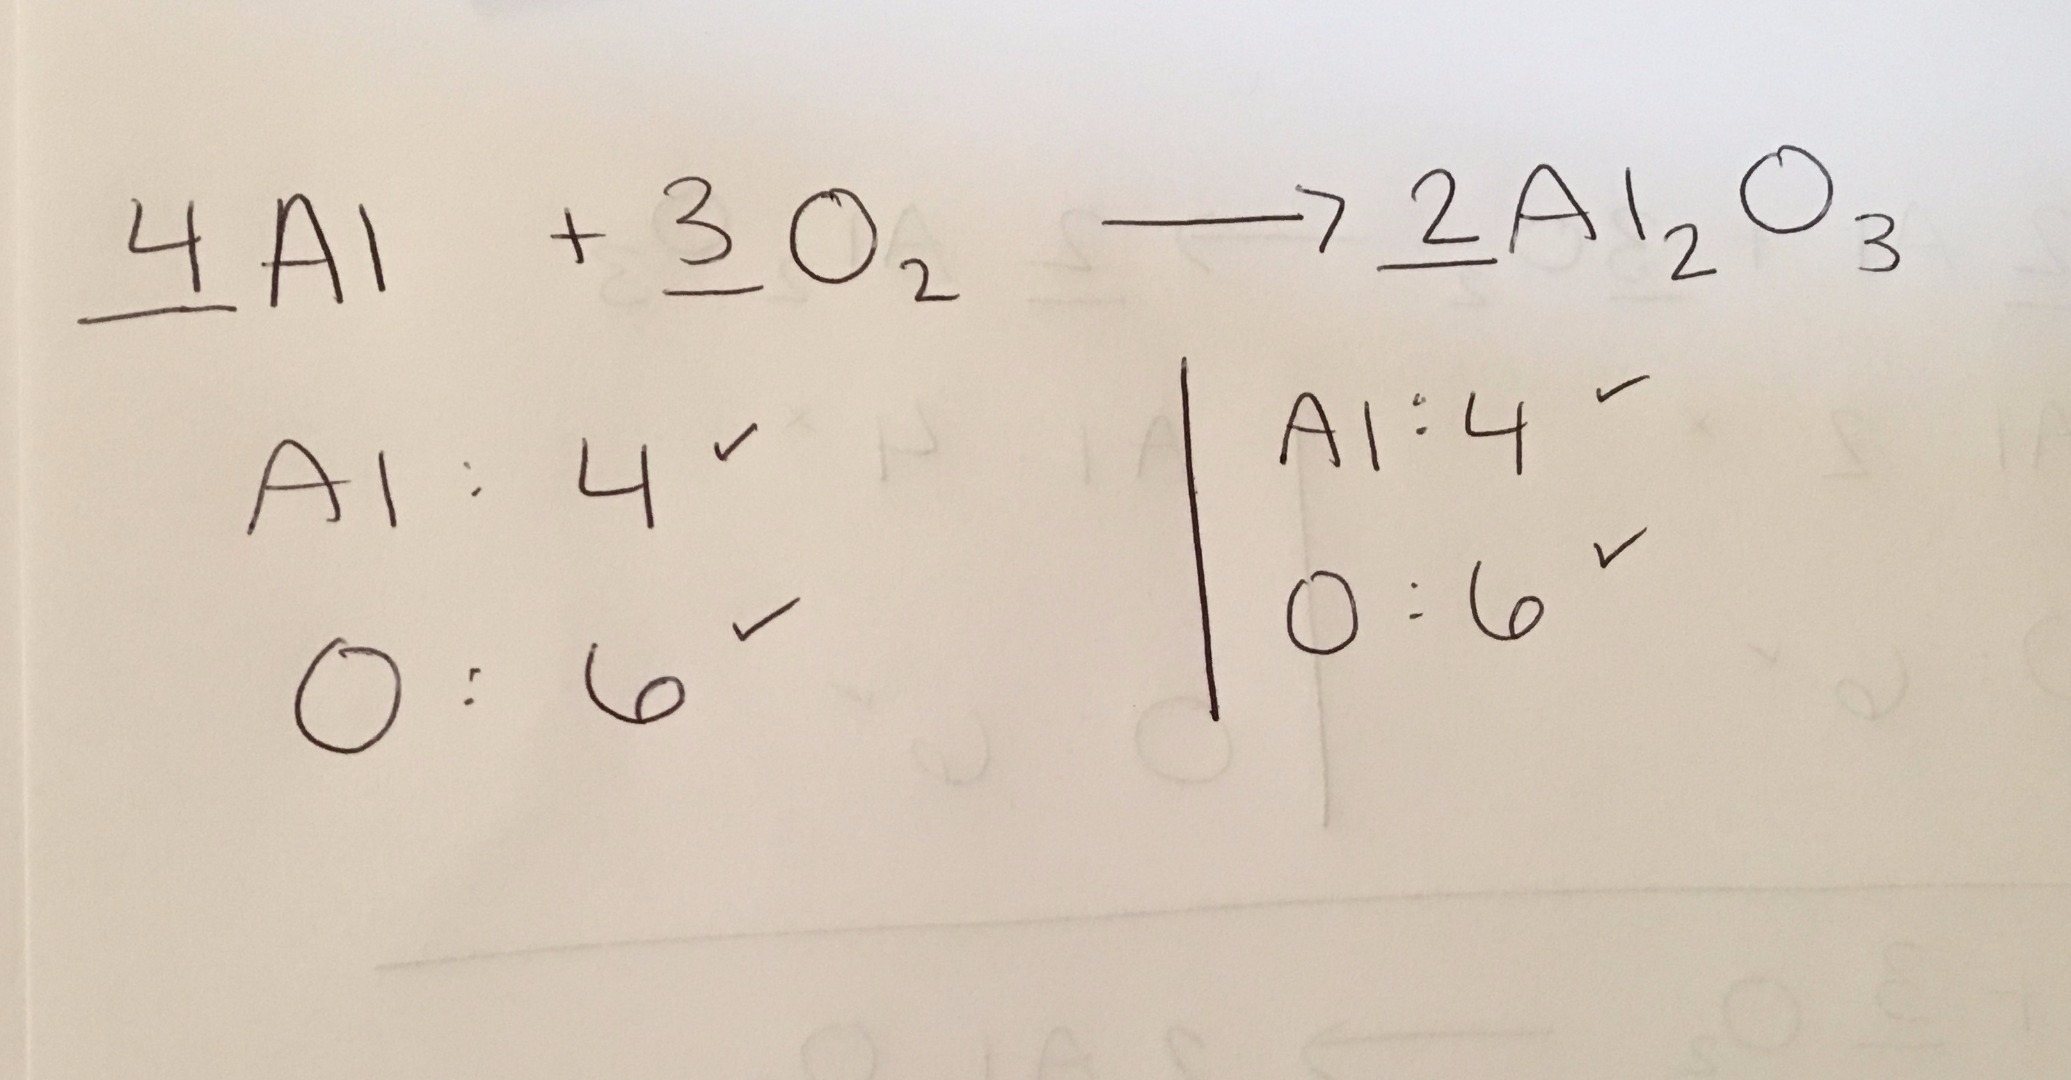 4Al + 3O₂ → 2Al₂O₃
Al : 4 ✓ | Al : 4 ✓
O : 6 ✓ | O : 6 ✓